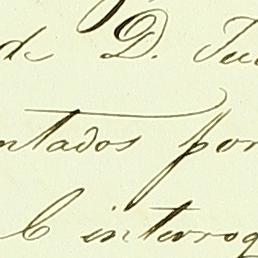 de D. Jua
ntados por
C interrog